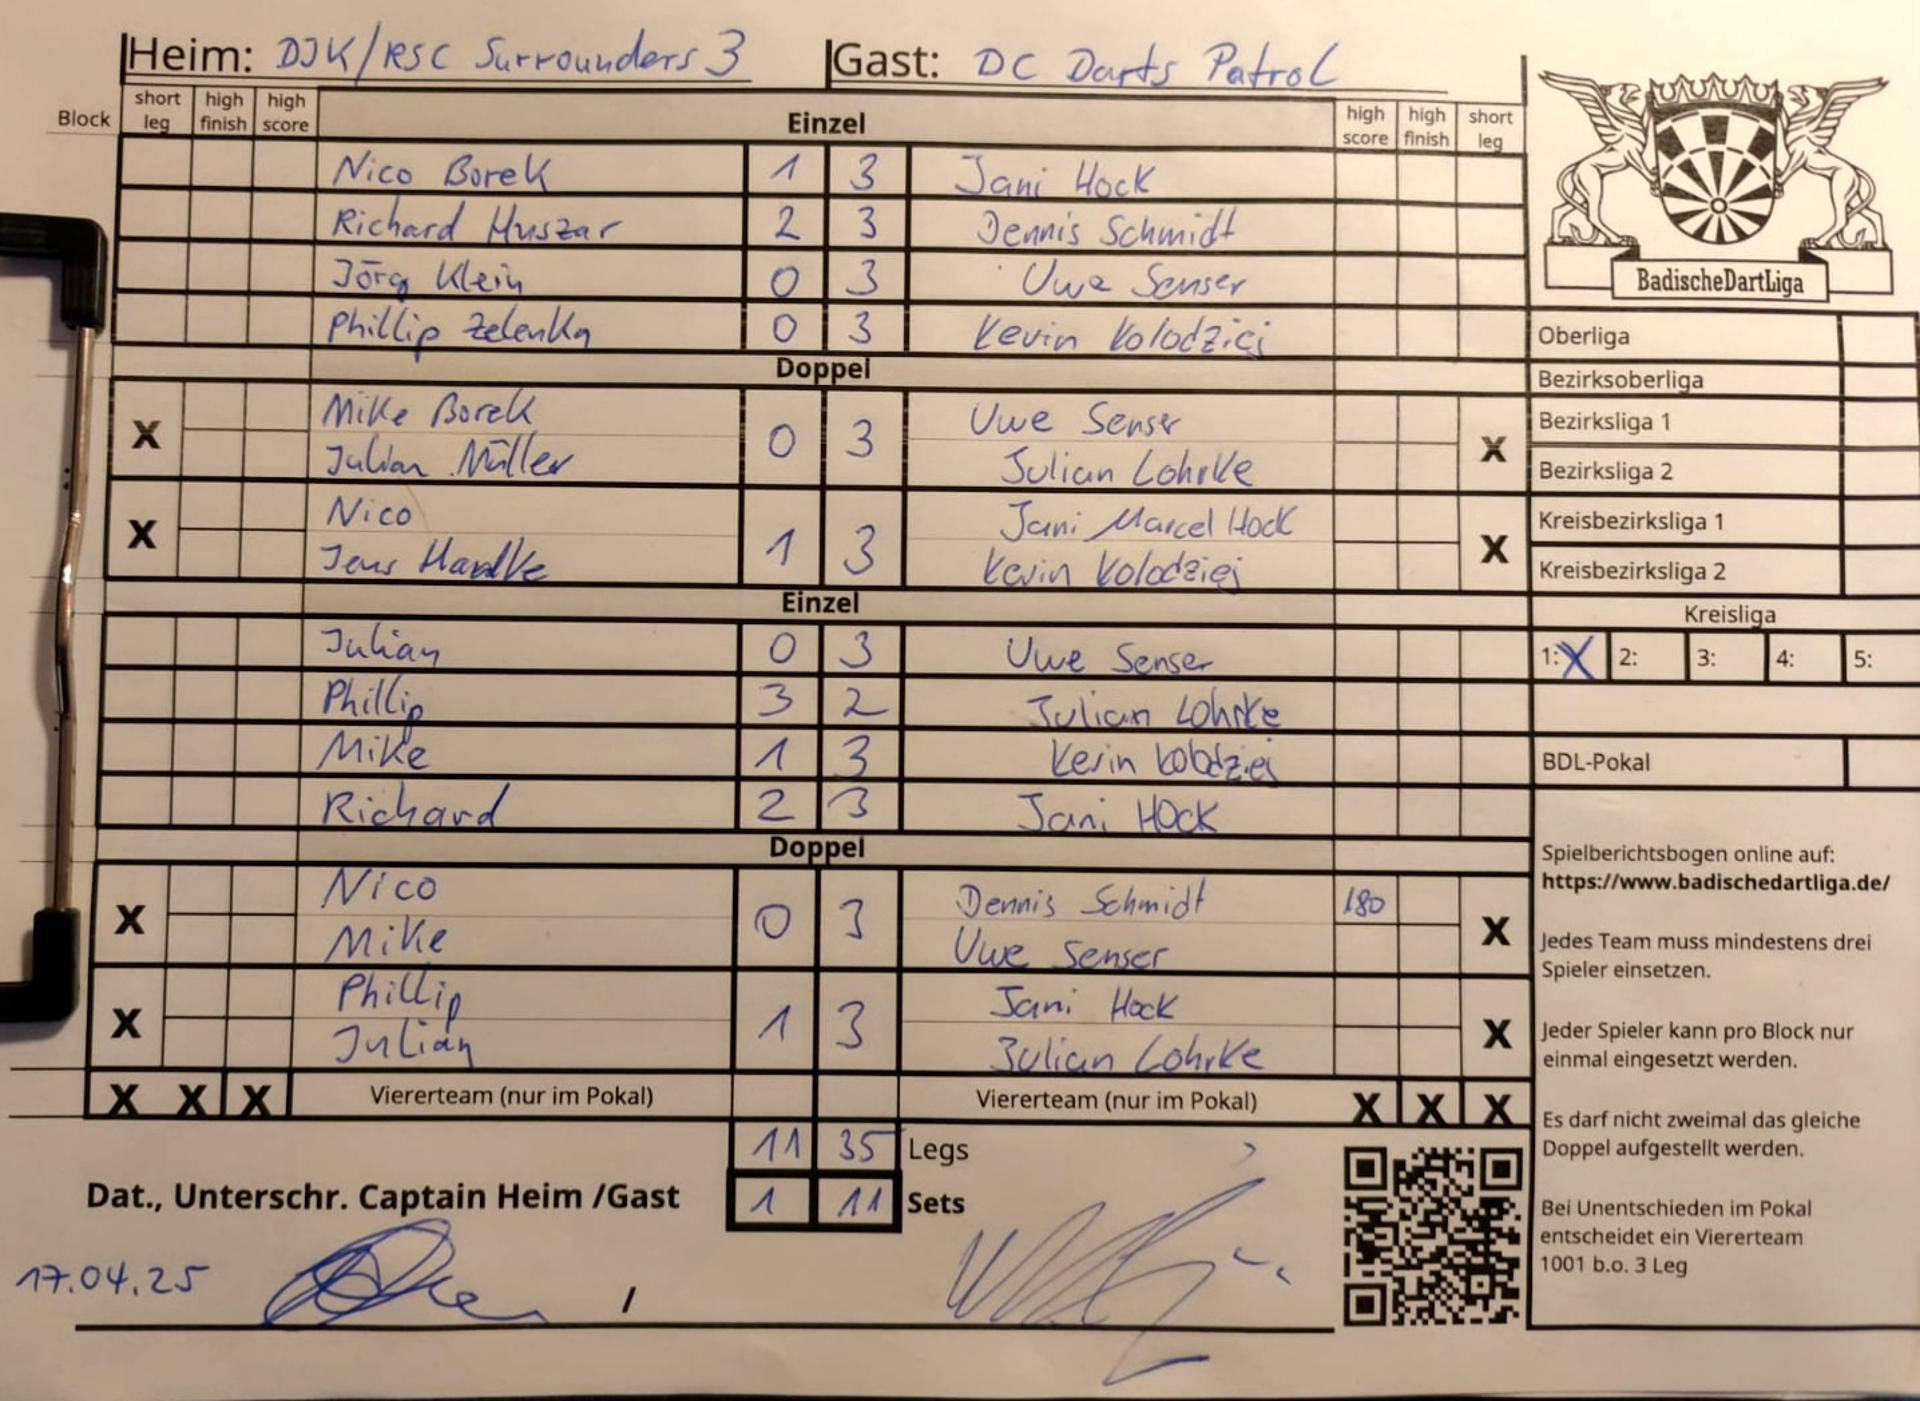 Heim: DJK/RSC Surrounders 3 Gast: DC Darts Patrol
Block short leg high finish high score Einzel high score high finish short leg
Nico Borek 1 3 Jani Hock
Richard Huszar 2 3 Dennis Schmidt
Jörg Klein 0 3 Uwe Senser
Phillip Zelenka 0 3 Kevin Kolodziej
Doppel
X Mike Borek 0 3 Uwe Senser X
Julian Müller Julian Lohrke
X Nico 1 3 Jani Marcel Hock X
Jens Kevin Kolodziej
Einzel
Julian 0 3 Uwe Senser
Phillip 3 2 Julian Lohrke
Mike 1 3 Kevin Kolodziej
Richard 2 3 Jani Hock
Doppel
X Nico 0 3 Dennis Schmidt 180 X
Mike Uwe Senser
X Phillip 1 3 Jani Hock X
Julian Julian Lohrke
X X X Viererteam (nur im Pokal) Viererteam (nur im Pokal) X X X
11 35 Legs
Dat., Unterschr. Captain Heim /Gast 1 11 Sets
17.04.25 /
BadischeDartLiga
Oberliga
Bezirksoberliga
Bezirksliga 1
Bezirksliga 2
Kreisbezirksliga 1
Kreisbezirksliga 2
Kreisliga
1: X 2: 3: 4: 5:
BDL-Pokal
Spielberichtsbogen online auf:
https://www.badischedartliga.de/
Jedes Team muss mindestens drei
Spieler einsetzen.
Jeder Spieler kann pro Block nur
einmal eingesetzt werden.
Es darf nicht zweimal das gleiche
Doppel aufgestellt werden.
Bei Unentschieden im Pokal
entscheidet ein Viererteam
1001 b.o. 3 Leg